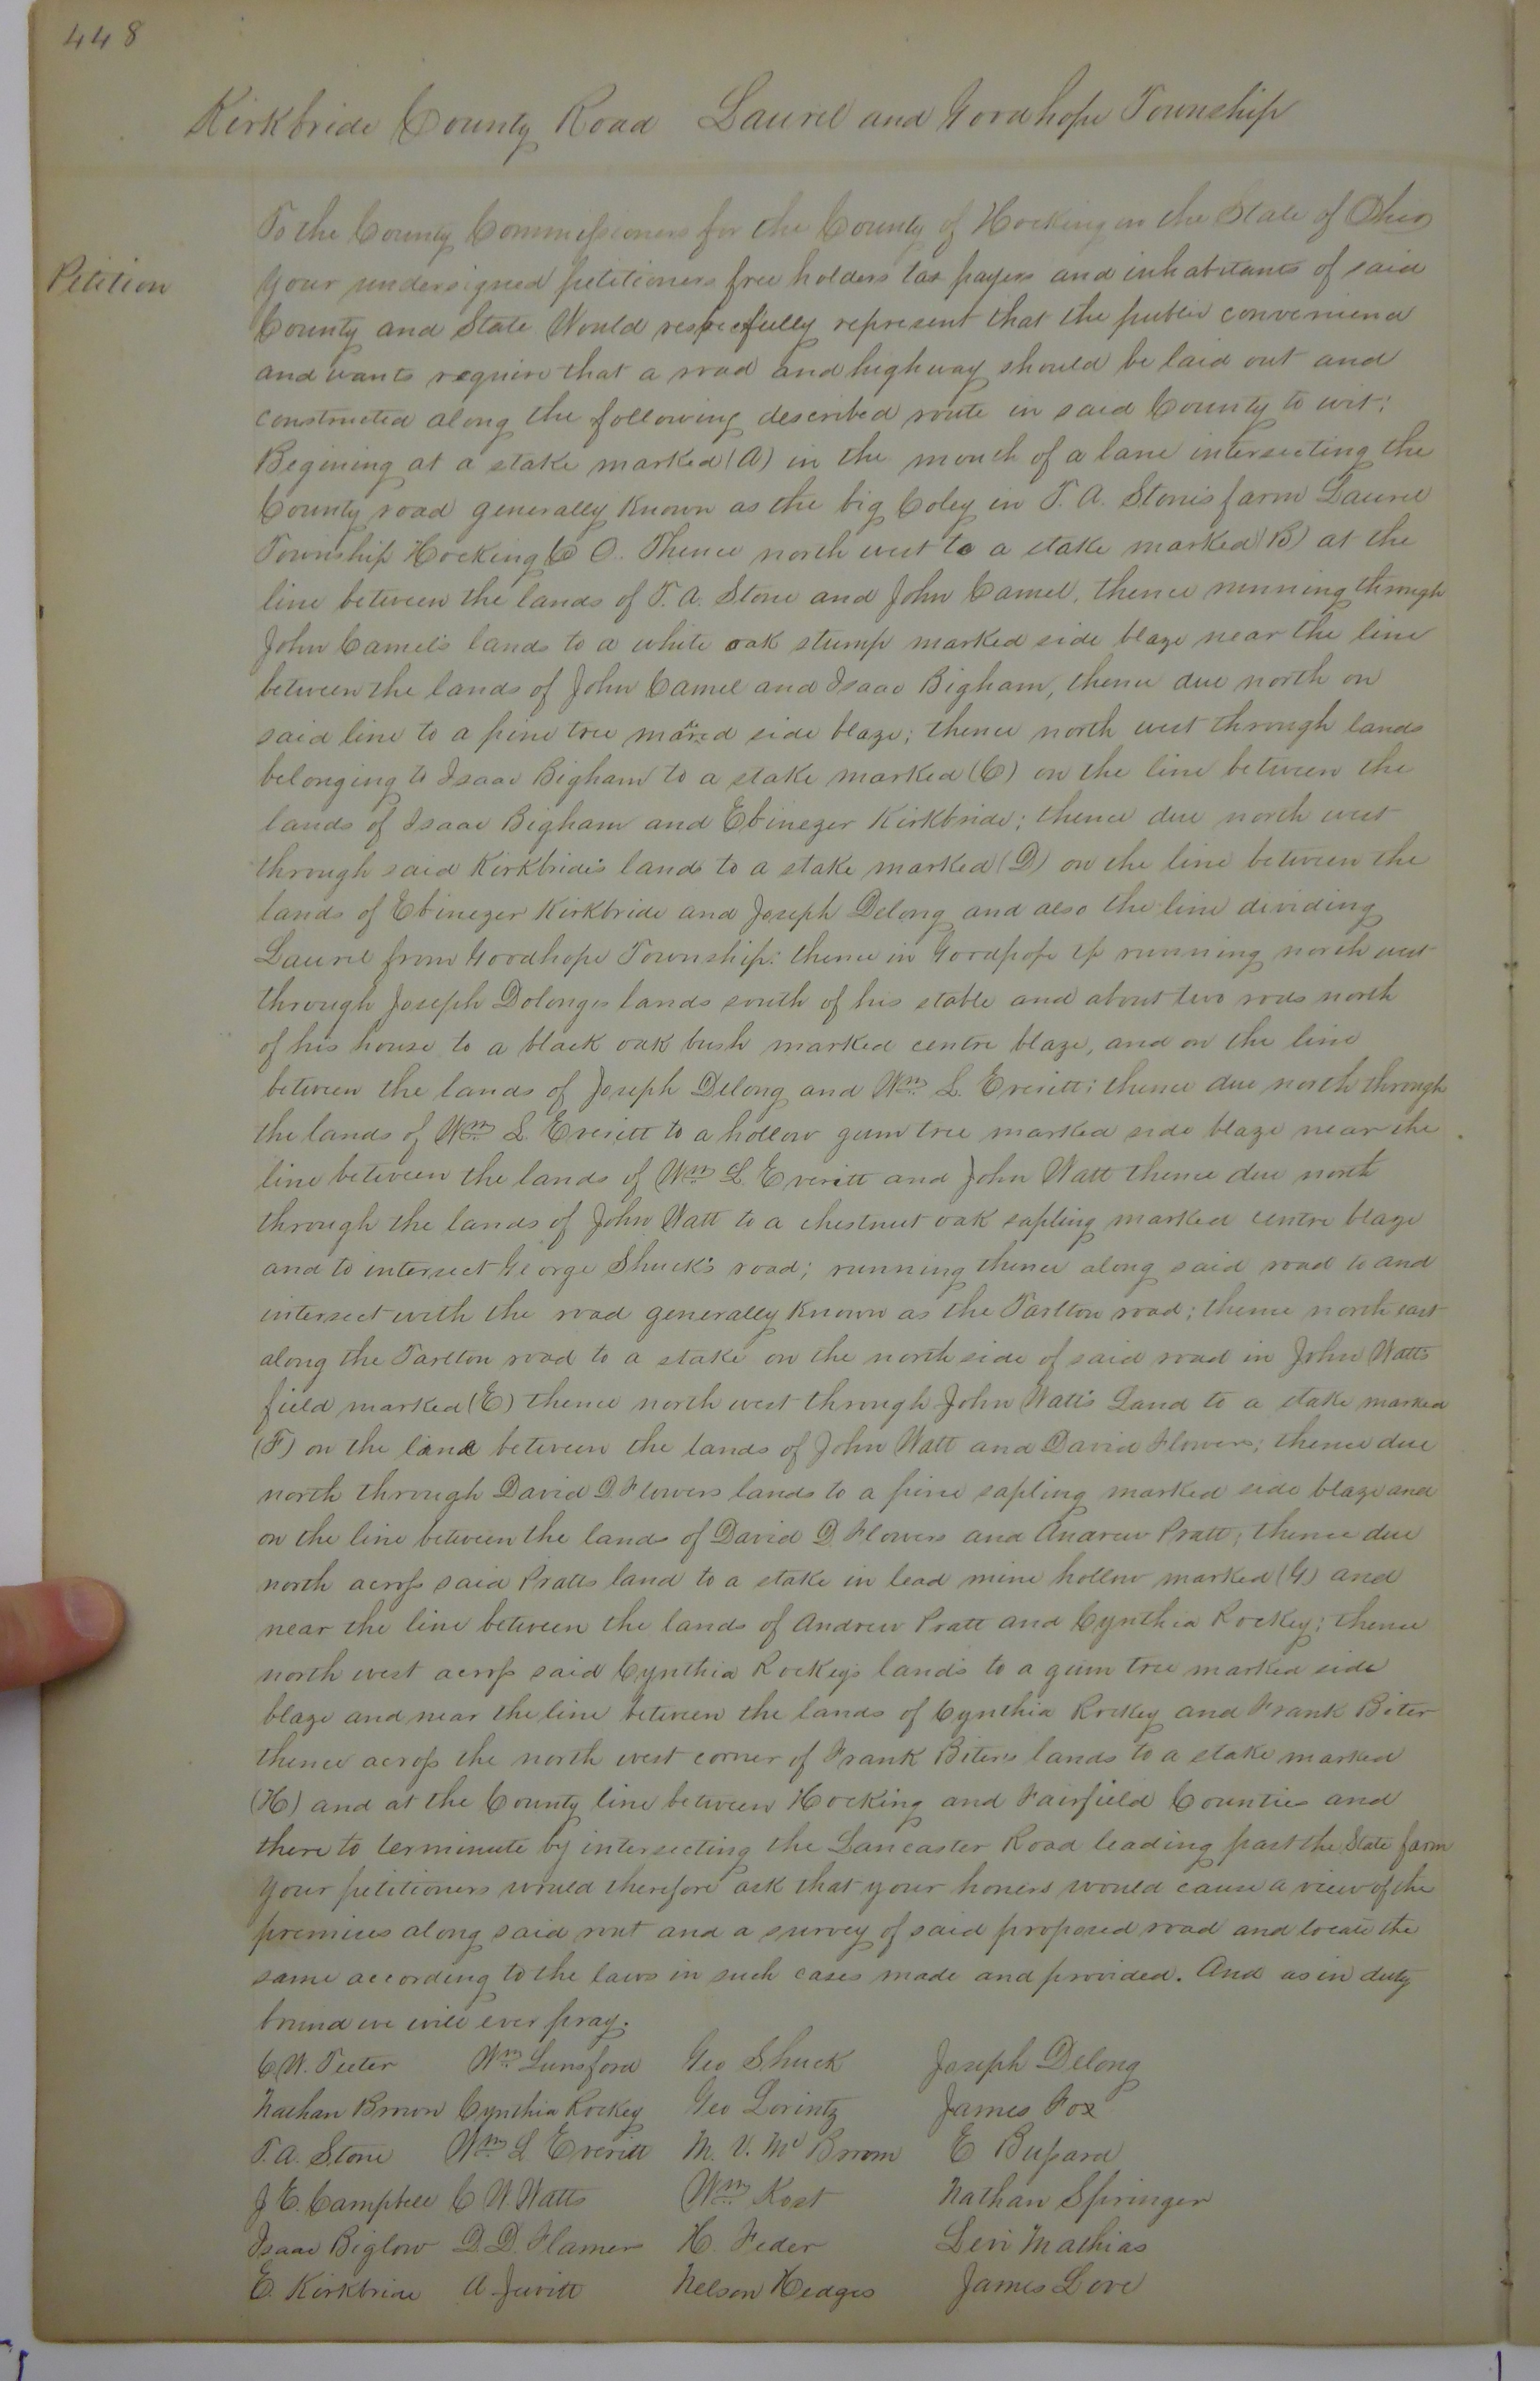 448
Kirkbride County Road Laurel and Goodhope Township
To the County Commissioners for the County of Hocking in the State of Ohio
Petition
Your undersigned petitioners free holders tax payers and inhabitants of said
County and State Would respecfully represent that the public convenience
and wants require that a road and highway should be laid out and
constructed along the following described route in said County to wit:
Begining at a stake marked (A) in the mouth of a lane intersecting the
County road generally known as the big Coley in T. A. Stone's farm Laurel
Township Hocking Co O. Thence north west to a stake marked (B) at the
line between the lands of T. A. Stone and John Camel, thence running through
John Camel's lands to a white oak stump marked side blaze near the line
between the lands of John Camel and Isaac Bigham, thence due north on
said line to a pine tree marked side blaze; thence north west through lands
belonging to Isaac Bigham to a stake marked (C) on the line between the
lands of Isaac Bigham and Ebinezer Kirkbride; thence due north west
through said Kirkbride's lands to a stake marked (D) on the line between the
lands of Ebinezer Kirkbride and Joseph Delong and also the line dividing
Laurel from Goodhope Township: thence in Goodhope tp running north west
through Joseph Dolonges lands south of his stable and about two rods north
of his house to a black oak bush marked centre blaze, and on the line
between the lands of Joseph Delong and Wm L. Everitt; thence due north through
the lands of Wm L Everitt to a hollow gum tree marked side blaze near the
line between the lands of Wm L Everitt and John Watt thence due north
through the lands of John Watt to a chestnut oak sapling marked centre blaze
and to intersect George Shuck's road; running thence along said road to and
intersect with the road generally known as the Tarlton road; thence north east
along the Tarlton road to a stake on the north side of said road in John Watts
field marked (E) thence north west through John Watt's Land to a stake marked
(F) on the line between the lands of John Watt and David Flowers; thence due
north through David D Flowers lands to a pine sapling marked side blaze and
on the line between the lands of David D. Flowers and Andrew Pratt; thence due
north across said Pratts land to a stake in lead mine hollow marked (G) and
near the line between the lands of Andrew Pratt and Cynthia Rockey; thence
north west across said Cynthia Rockey's lands to a gum tree marked side
blaze and near the line between the lands of Cynthia Rockey and Frank Biter
thence across the north west corner of Frank Biter's lands to a stake marked
(H) and at the County line between Hocking and Fairfield Counties and
there to terminute by intersecting the Lancaster Road leading past the State farm
Your petitioners would therefore ask that your honers would cause a view of the
premises along said rout and a survey of said proposed road and locate the
same according to the laws in such cases made and provided. And as in duty
bound we will ever pray.
C. W. Teeter Wm Lunsford Geo Shuck Joseph Delong
Nathan Brown Cynthia Rockey Geo Lorintz James Fox
T. A. Stone Wm L Everitt M. V. Mc Broom E Bussard
J E. Campbell C W Watts Wm Kost Nathan Springer
Isaac Biglow D. D. Flamers H. Feder Levi Mathias
E. Kirkbride A Juvitt Nelson Hedges James Love